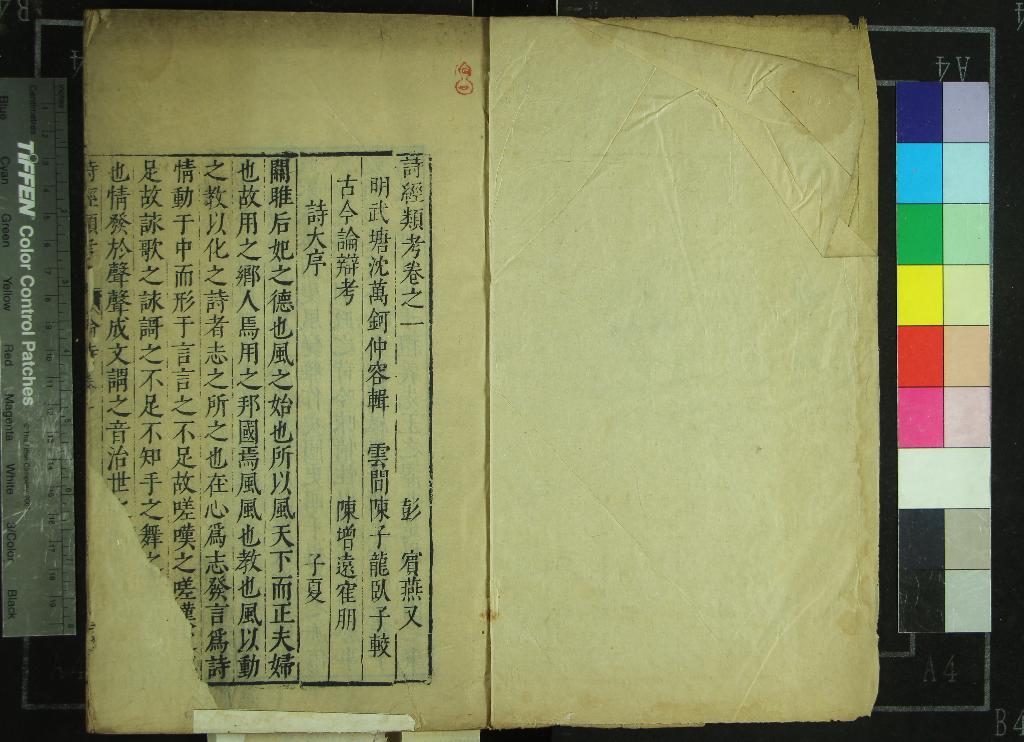 詩經類考卷之一 彭 賓燕又
明武塘沈萬鈳仲容輯 雲間陳子龍臥子較
古今論辯考 陳增遠寉朋
詩大序 子夏
關雎后妃之德也風之始也所以風天下而正夫婦
也故用之鄉人焉用之邦國焉風風也教也風以動
之教以化之詩者志之所之也在心爲志發言爲詩
情動于中而形于言言之不足故嗟嘆之嗟嘆之
足故詠歌之詠謌之不足不知手之舞之
也情發於聲聲成文謂之音治世之
詩經類考
TIFFEN Color Control Patches
Centimetres
Inches
Blue
Cyan
Green
Yellow
Red
Magenta
White
3/Color
Black
A4
A4
A4
B4